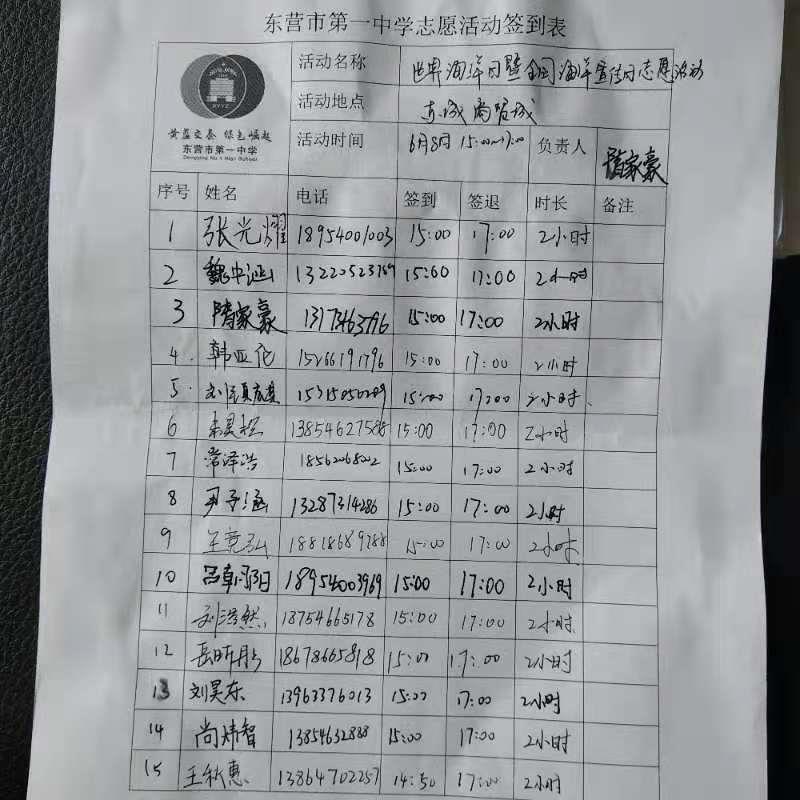 东营市第一中学志愿活动签到表
活动名称 世界海洋日暨全国海洋宣传日志愿活动
活动地点 东城商贸城
活动时间 6月8日 15:00~17:00 负责人 隋家豪
黄蓝交泰 绿色崛起
东营市第一中学
Dongying No.1 High School
序号 姓名 电话 签到 签退 时长 备注
1 张光耀 18954001003 15:00 17:00 2小时
2 魏中涵 13220523769 15:00 17:00 2小时
3 隋家豪 13173463796 15:00 17:00 2小时
4. 韩亚伦 15266191796 15:00 17:00 2小时
5. 15315050209 15:00 17:00 2小时.
6 13854627588 15:00 17:00 2小时
7 常泽浩 18562068002 15:00 17:00 2小时
8 尹子涵 13287314286 15:00 17:00 2小时
9 王竞弘 18818689288 15:00 17:00 2小时
10 吕卓阳 18954003969 15:00 17:00 2小时
11 刘浩然 18754665178 15:00 17:00 2小时
12 岳昕彤 18678665818 15:00 17:00 2小时
13 刘昊东 13963376013 15:00 17:00 2小时
14 尚炜智 13854632888 15:00 17:00 2小时
15 王秋惠 13864702257 14:50 17:00 2小时